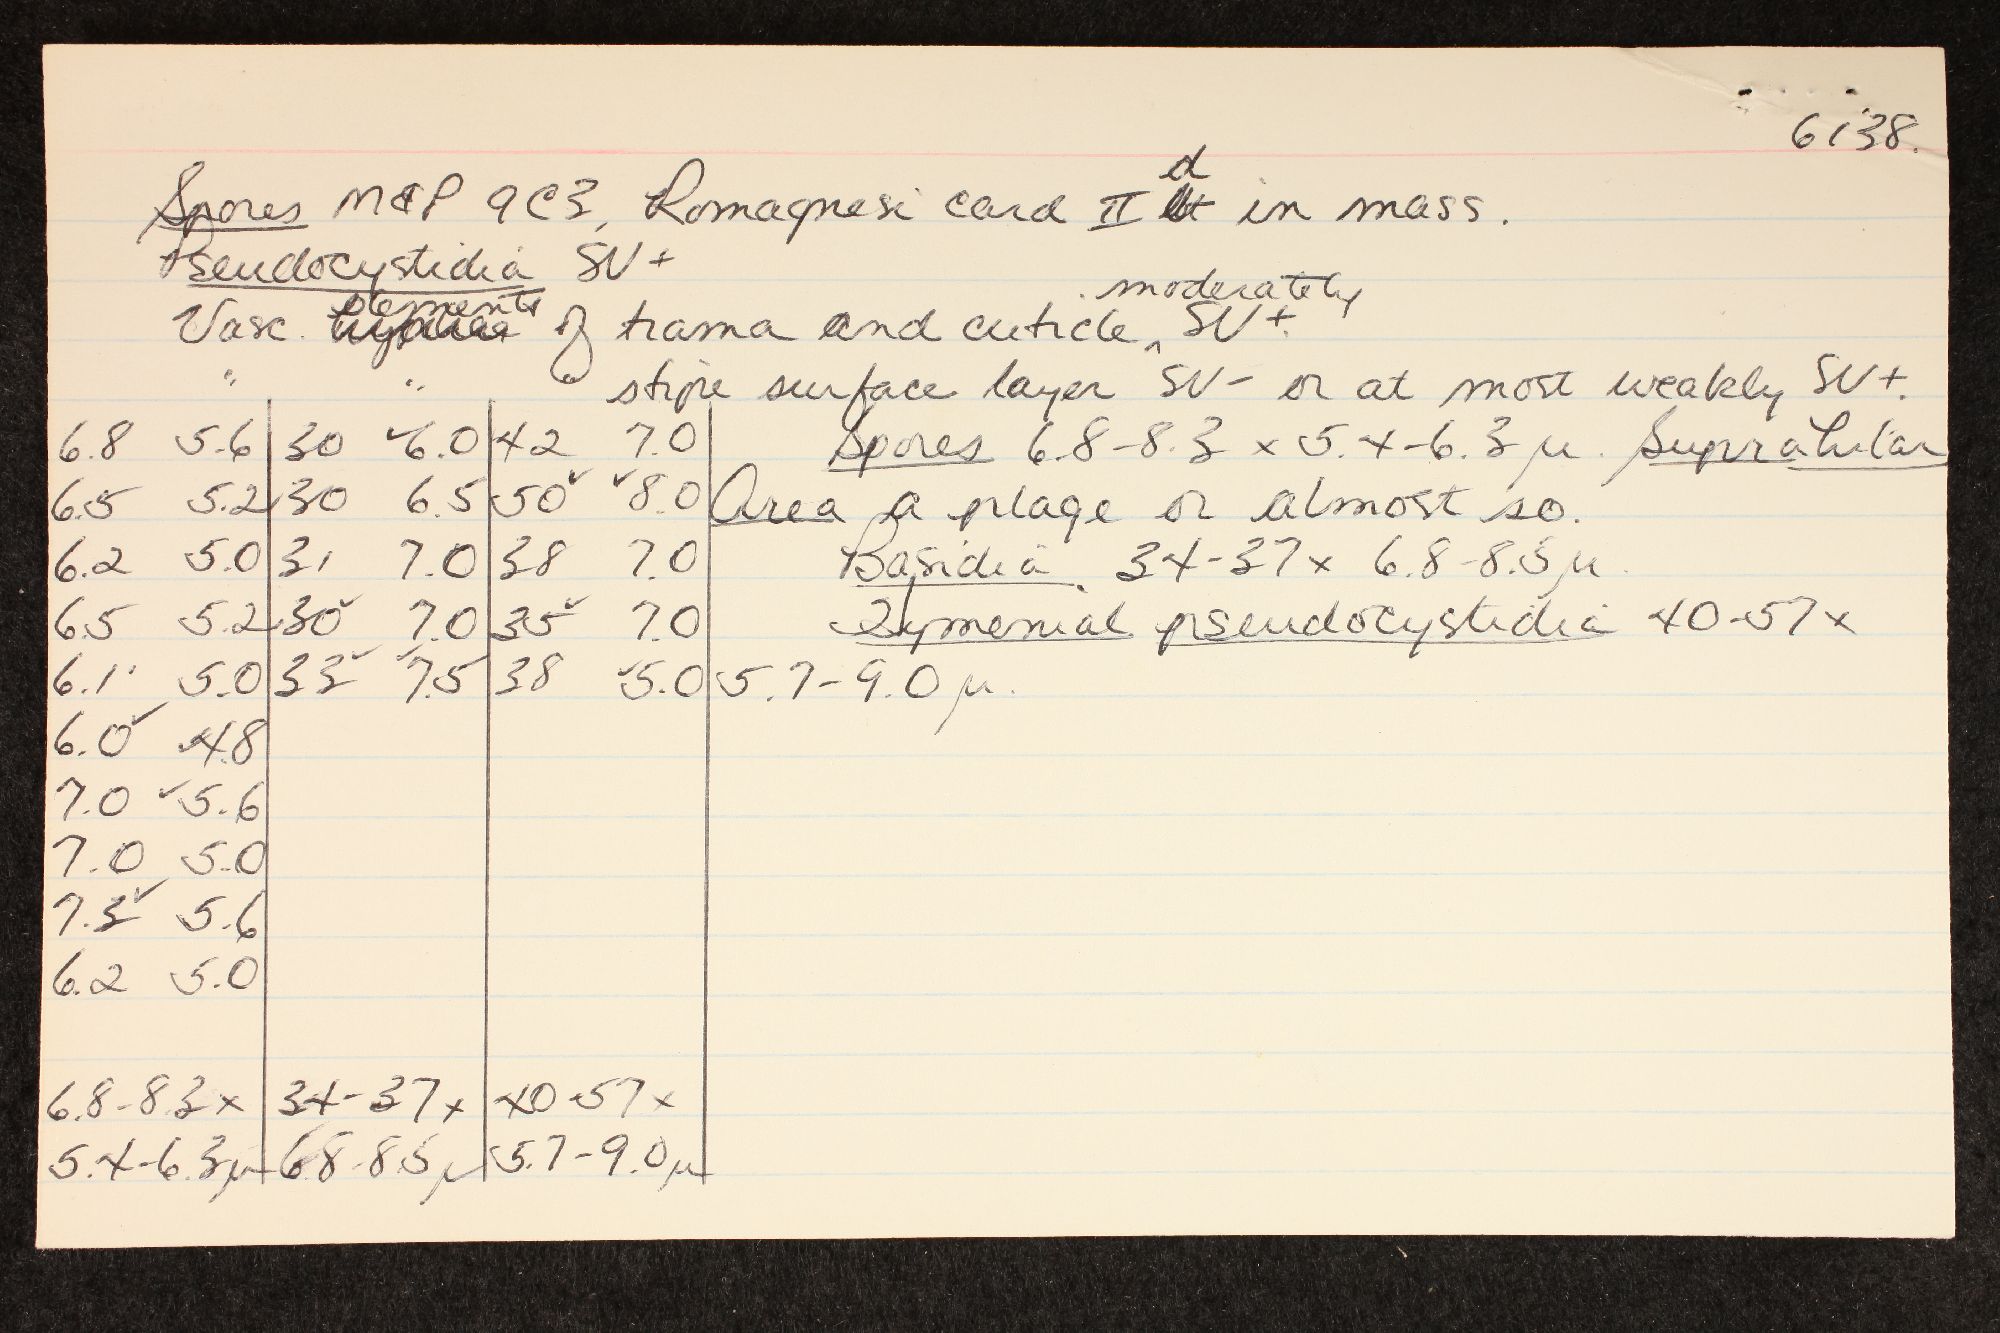 6138.
Spores M&P 9C3, Romagnesi card II d in mass.
Pseudocystidia SV+
Vasc. elements of trama and cuticle, moderately SV+.
" " " stipe surface layer SV- or at most weakly SV+.
6.8 5.6 30 ✓6.0 42 7.0 Spores 6.8-8.3 x 5.4-6.3 µ. Suprahilar
6.5 5.2 30 6.5 50✓ ✓8.0 Area a plage or almost so.
6.2 5.0 31 7.0 38 7.0 Basidia 34-37 x 6.8-8.5 µ.
6.5 5.2 30✓ 7.0 35✓ 7.0 Hymenial pseudocystidia 40-57 x
6.1 5.0 33✓ ✓7.5 38 ✓5.0 5.7-9.0 µ.
6.0✓ 4.8
7.0 ✓5.6
7.0 5.0
7.3✓ 5.6
6.2 5.0
6.8-8.3 x 34-37 x 40-57 x
5.4-6.3 µ 6.8-8.5 µ 5.7-9.0 µ